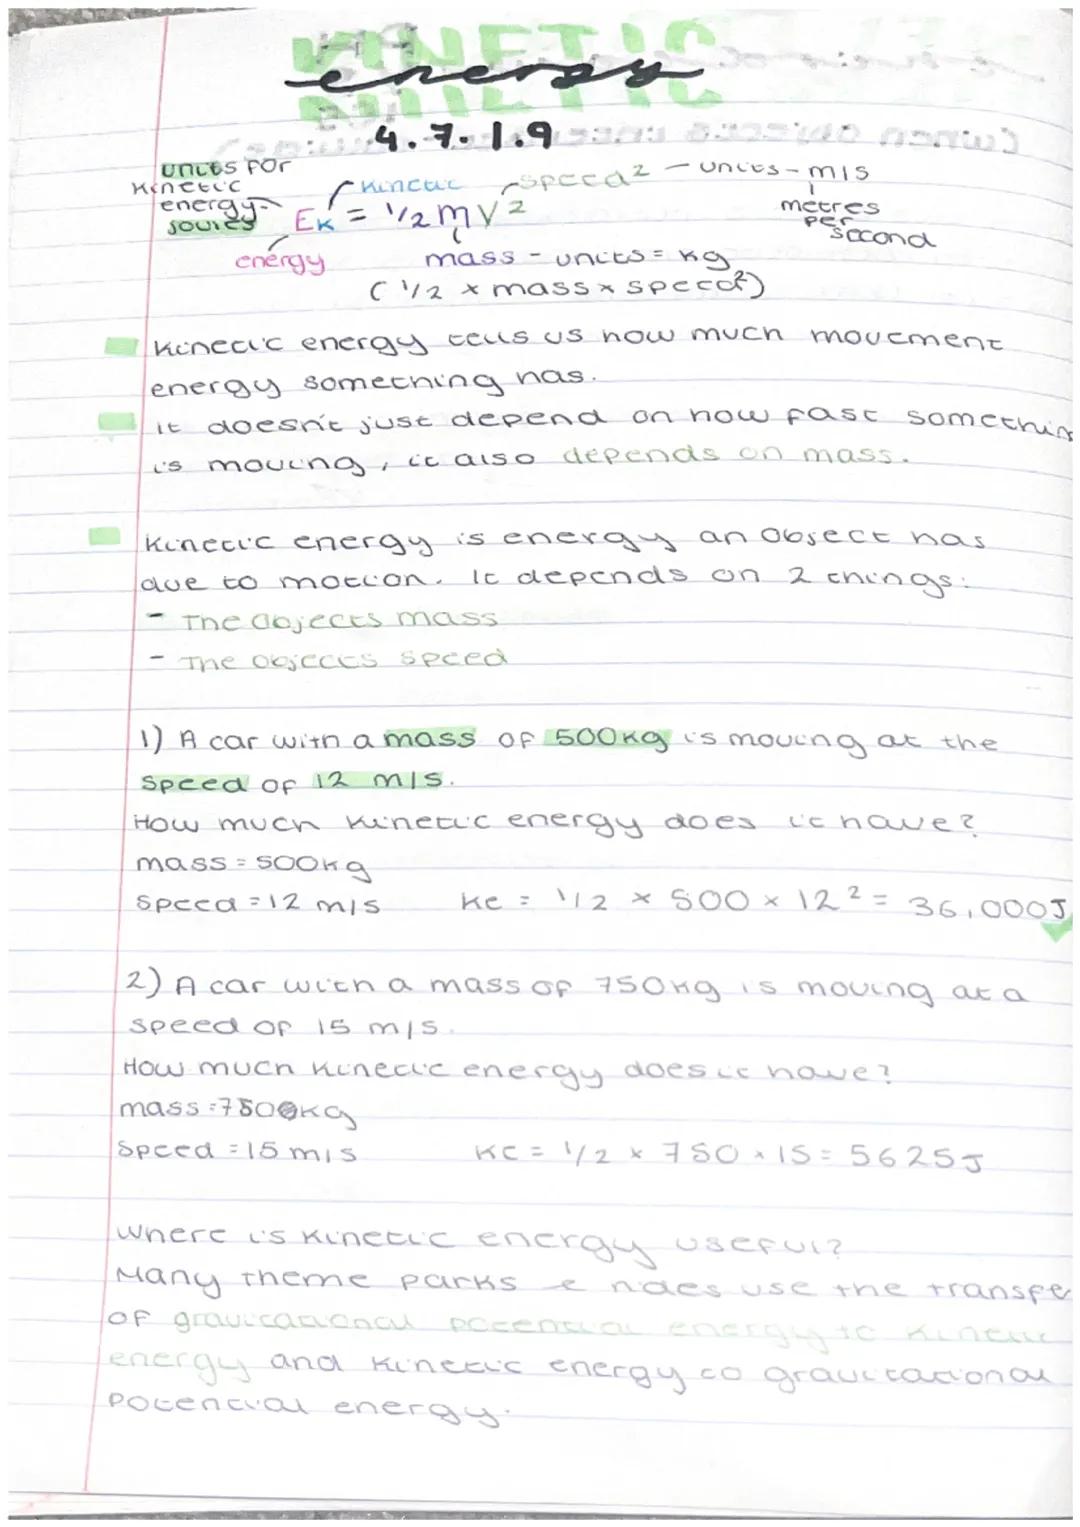 KINETIC
energy
4.7.1.9
units for
Kinetic
energy-
joules
Kinetic
speed² - units - m/s
metres
per
second
EK = 1/2 m v²
energy
mass - units = kg
(1/2 × mass × speed²)
Kinetic energy tells us how much movement
energy something has.
It doesn't just depend on how fast somethin
is moving, it also depends on mass.
Kinetic energy is energy an object has
due to motion. It depends on 2 things:
- The objects mass
- The objects speed
1) A car with a mass of 500kg is moving at the
speed of 12 m/s.
How much kinetic energy does it have?
mass = 500kg
speed = 12 m/s
Ke = 1/2 × 500 × 12² = 36,000J
2) A car with a mass of 750kg is moving at a
speed of 15 m/s.
How much kinetic energy does it have?
mass = 750kg
speed = 15 m/s
KE = 1/2 × 750 × 15 = 5625J
Where is kinetic energy useful?
Many theme parks rides use the transfe
of gravitational potential energy to kinetic
energy and kinetic energy to gravitational
potential energy.